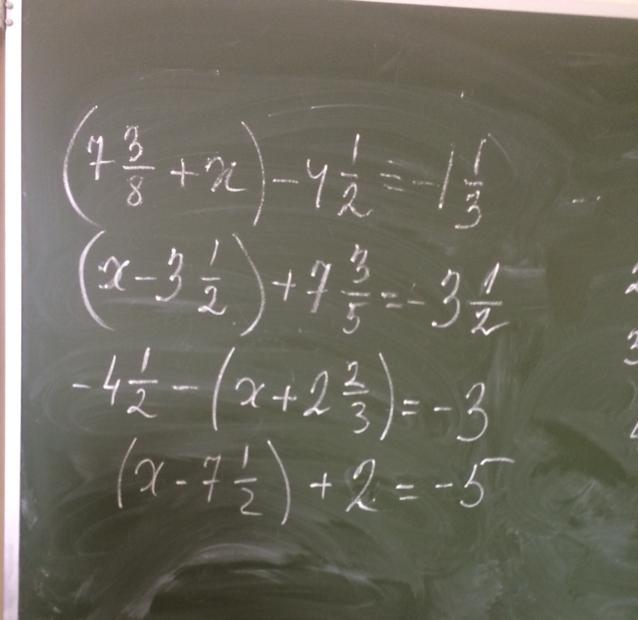 (7 3/8 + x) - 4 1/2 = -1 1/3
(x - 3 1/2) + 7 3/5 = -3 1/2
-4 1/2 - (x + 2 2/3) = -3
(x - 7 1/2) + 2 = -5